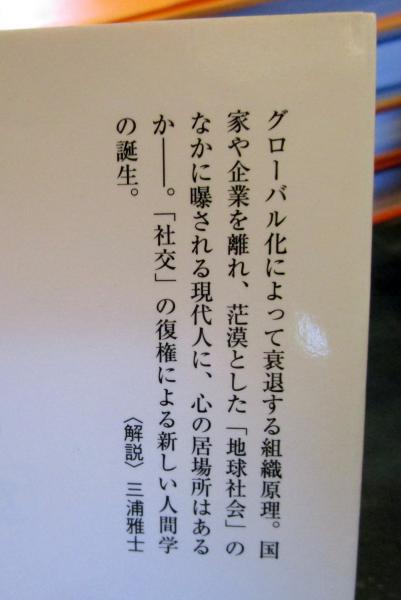 グローバル化によって衰退する組織原理。国
家や企業を離れ、茫漠とした「地球社会」の
なかに曝される現代人に、心の居場所はある
か――。「社交」の復権による新しい人間学
の誕生。
〈解説〉三浦雅士